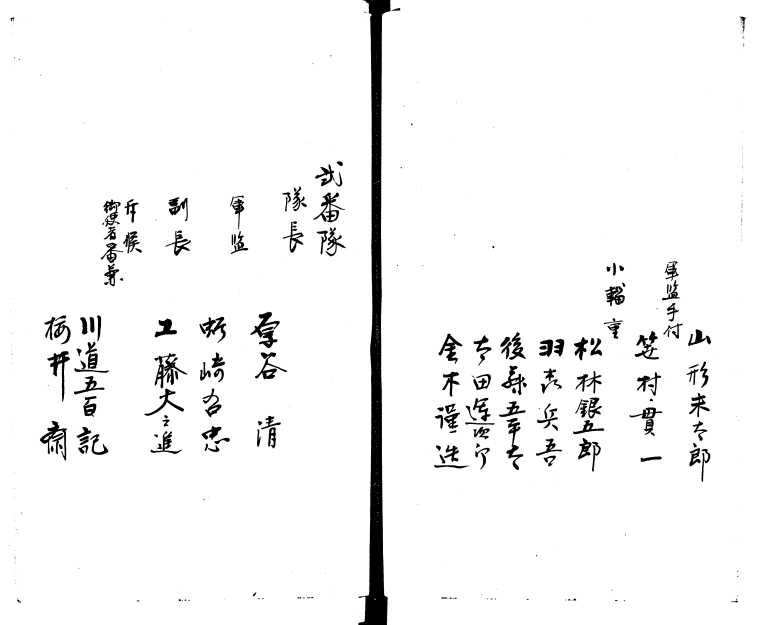 山形来太郎
軍監手付
笹村貫一
小輔重
松林銀五郎
羽兵吾
後藤五平太
太田
金木謹
弐番隊
隊長
厚谷清
軍監
蛎崎右忠
副長
工藤大之進
斥候
川道五百記
御使者番兼
梅井斎